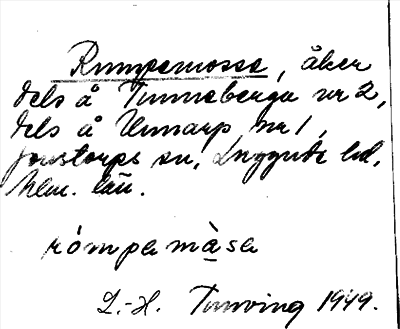 Rumpemosse, åker
dels å Tunneberga nr 2,
dels å Unnarp nr 1,
Jonstorps sn, Luggude hd,
Mlm. län.
rómpemàse
L.-H. Tunving 1949.